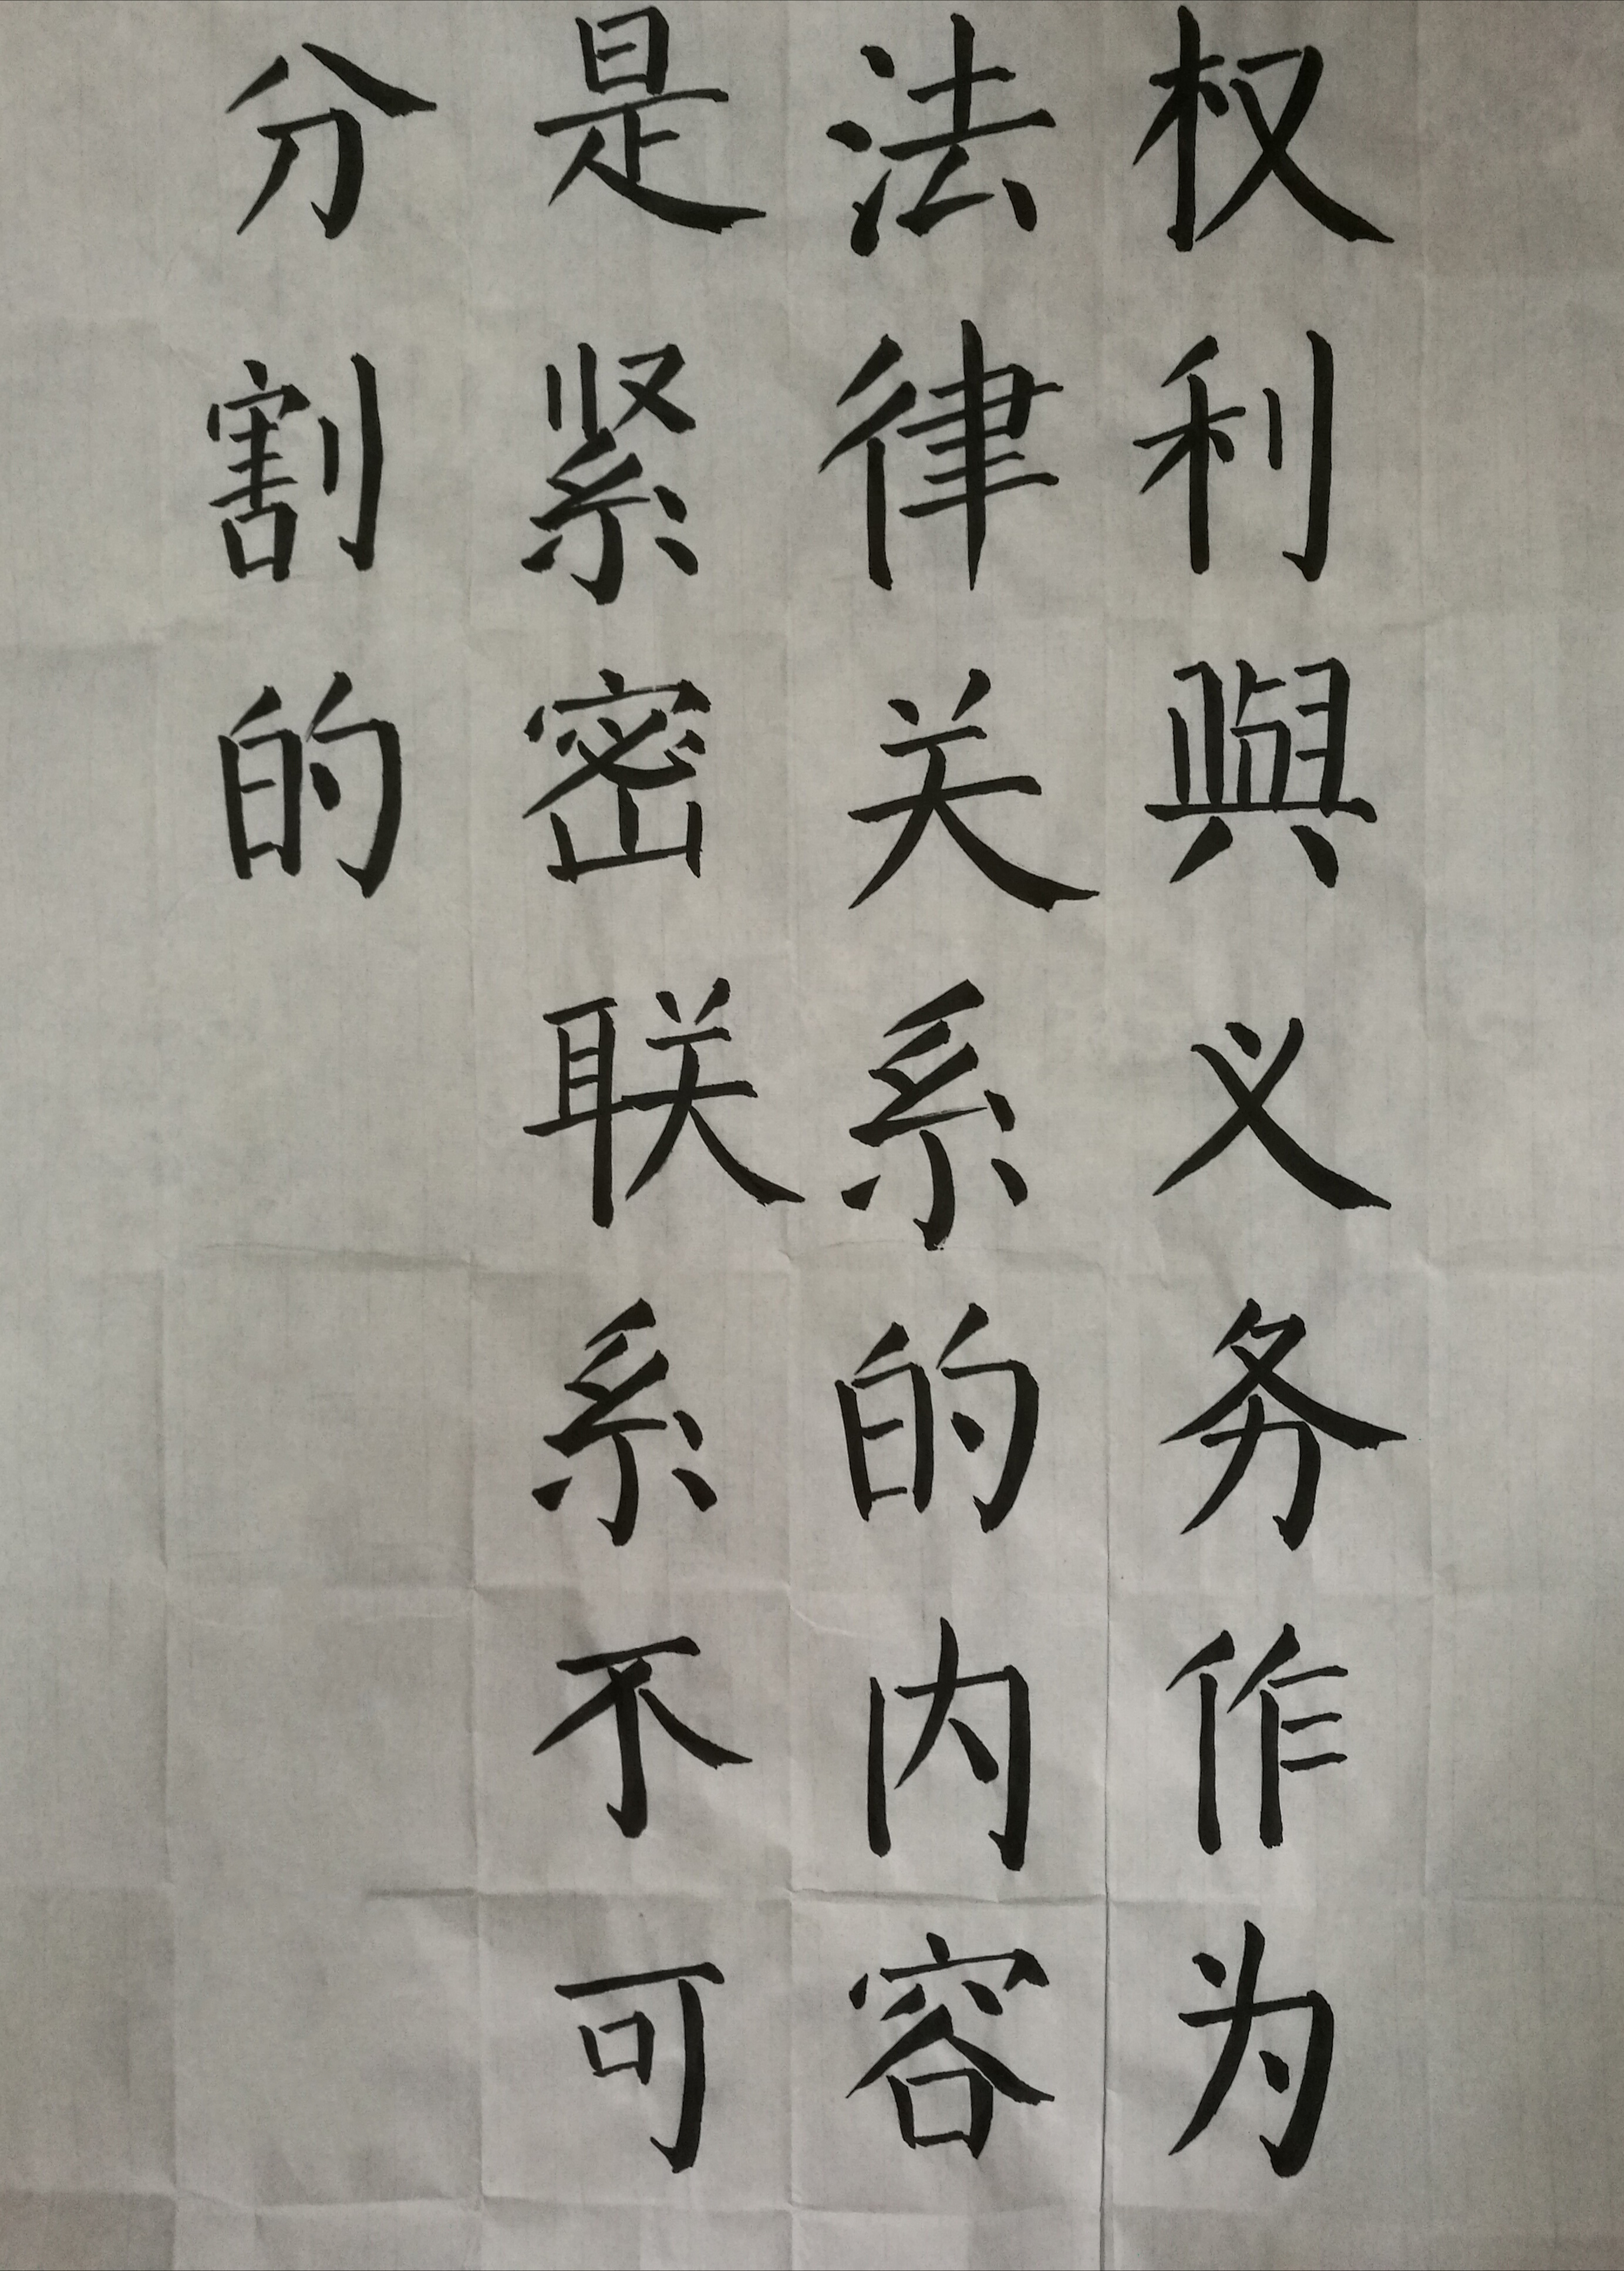 权利與义务作为
法律关系的内容
是紧密联系不可
分割的